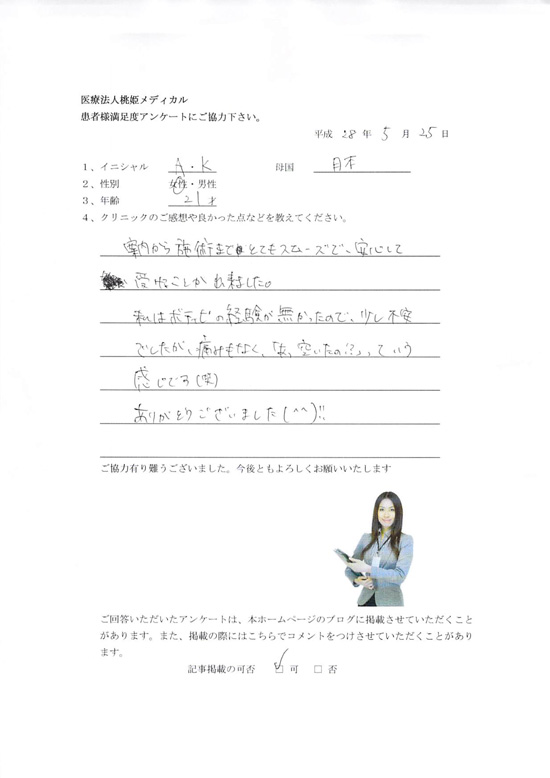 医療法人桃姫メディカル
患者様満足度アンケートにご協力下さい。
平成 28 年 5 月 25 日
1、イニシャル A・K 母国 日本
2、性別 女性・男性
3、年齢 21才
4、クリニックのご感想や良かった点などを教えてください。
案内から施術まで とてもスムーズで、安心して
受けることが出来ました。
私はボディピの経験が無かったので、少し不安
でしたが、痛みもなく、「あ、空いたの?」っていう
感じです(笑)
ありがとうございました(^^)!!
ご協力有り難うございました。今後ともよろしくお願いいたします
ご回答いただいたアンケートは、本ホームページのブログに掲載させていただくこと
があります。また、掲載の際にはこちらでコメントをつけさせていただくことがあり
ます。
記事掲載の可否 ☑ 可 □ 否